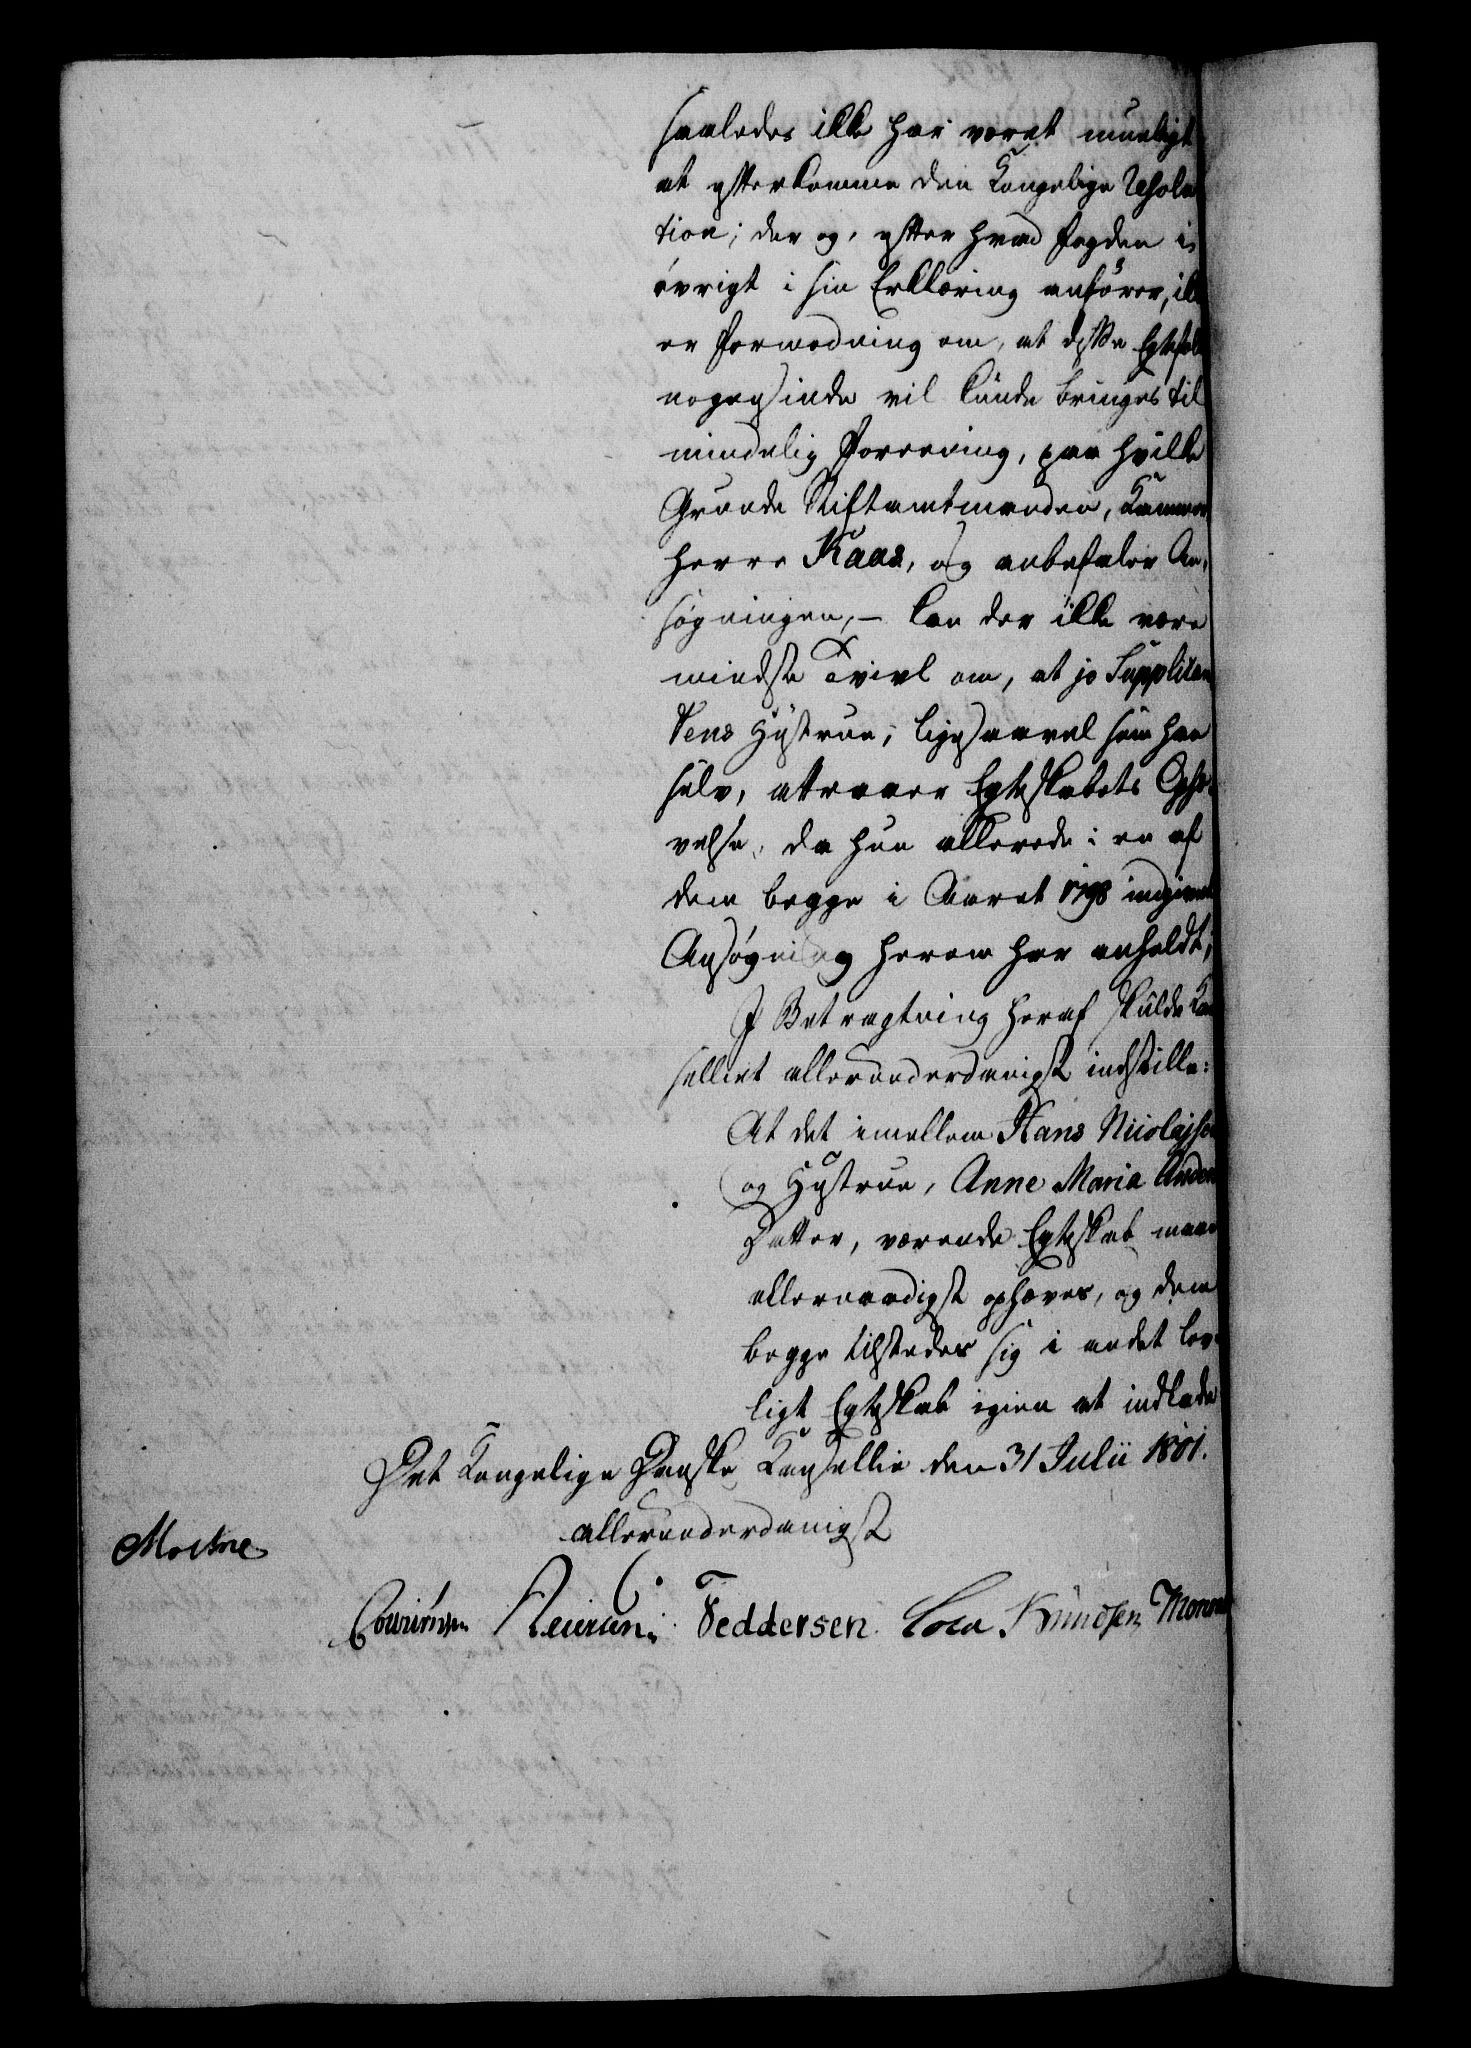 saaledes ikke har været mueligt
at efterkomme den Kongelige Resolu
tion; der og, efter hvad Fogden i
øvrigt i sin Erklæring anfører, ik
er Formodning om, at disse Egtefol
nogensinde vil kunde bringes til
mindelig Forening, paa hvilke
Grunde Stiftamtmanden, Kammer
herre Kaas, og anbefaler An
søgningen, – kan der ikke være
mindste Tvivl om, at jo Supplican
tens Hustrue, ligesaavel som han
selv, attraaer Egteskabets Ophæ
velse, da hun allerede i en af
dem begge i Aaret 1798 indgivet
Ansøgning herom har anholdt;
I Betragtning heraf skulde Kan
selliet allerunderdanigst indstille:
At det imellem Hans Nicolajsen
og Hustrue, Anne Maria Anders
Datter, værende Egteskab maae
allernaadigst ophæves, og dem
begge tilstedes sig i andet lov
ligt Egteskab igien at indlade
Det Kongelige Danske Kansellie den 31 Julii 1801.
allerunderdanigst
Møstrie
Feddersen. Knudsen Monrad